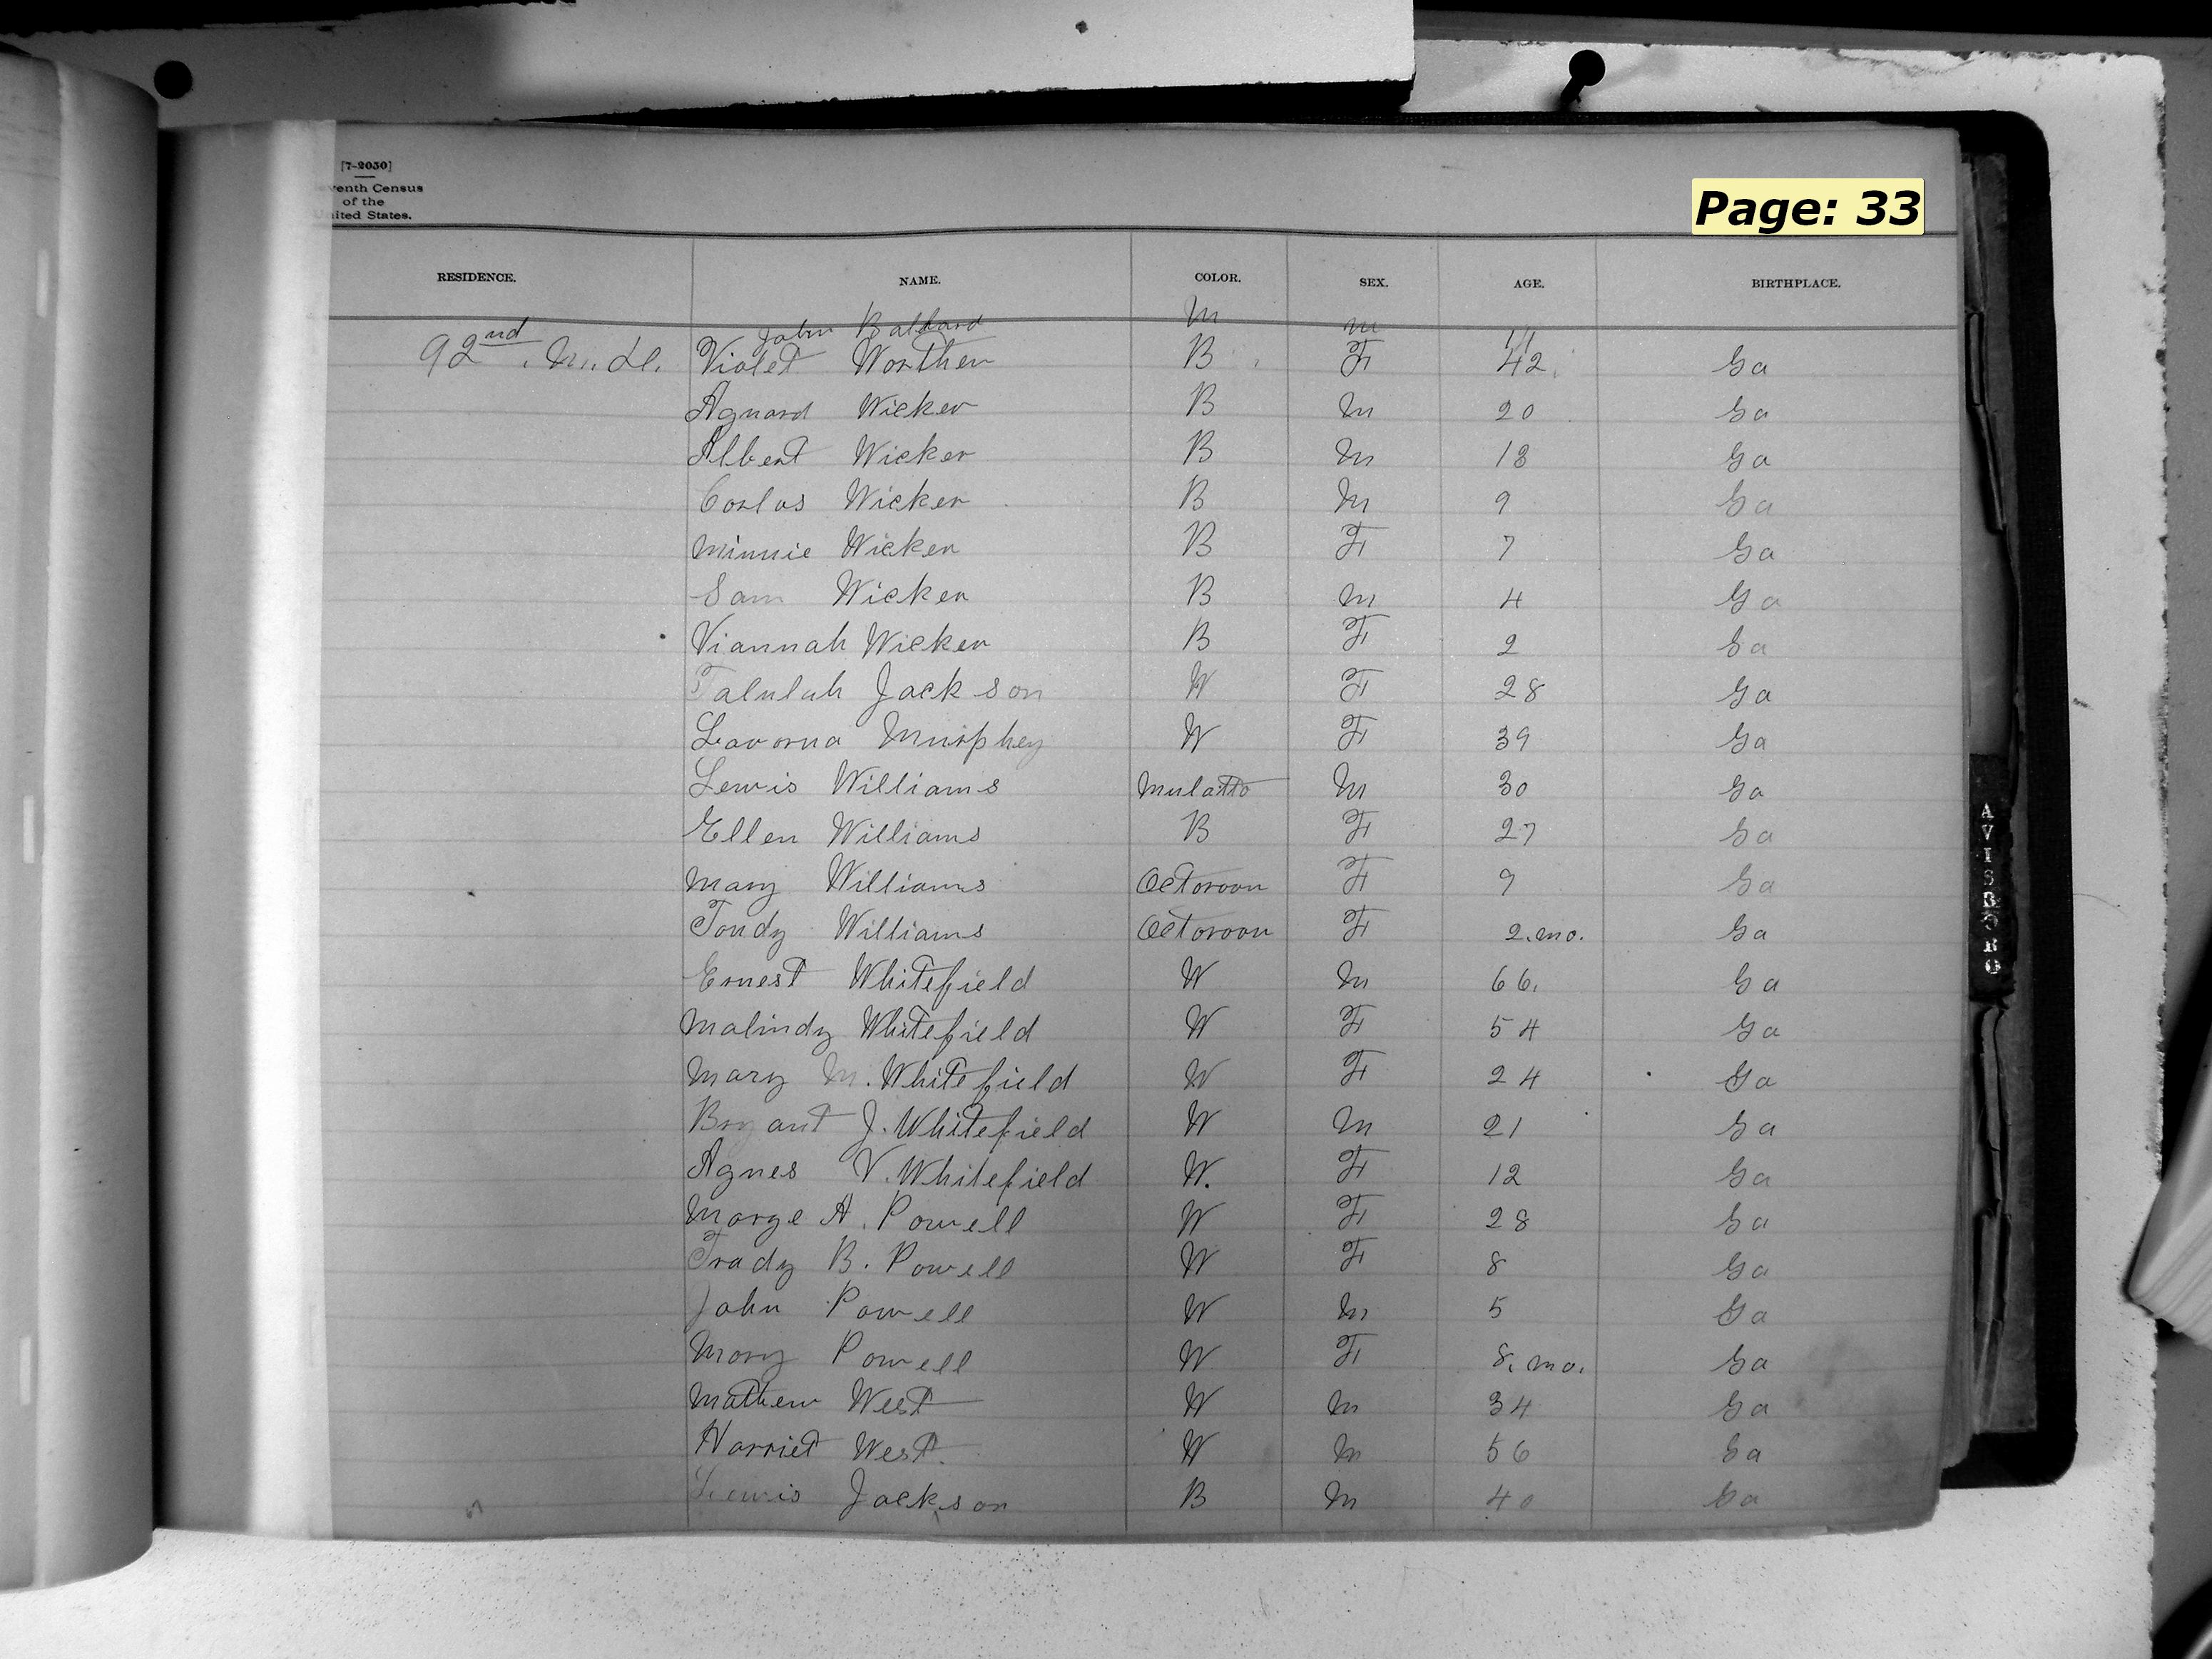 [7-2030]
venth Census
of the
nited States.
Page: 33
RESIDENCE. NAME. COLOR. SEX. AGE. BIRTHPLACE.
John Ballard M m 11
92nd. M. Violet Worthen B F 42 Ga
Agnard Wicker B M 20 Ga
Albert Wicker B M 13 Ga
Corlos Wicker B M 9 Ga
Minnie Wicker B F 7 Ga
Sam Wicker B M 4 Ga
Viannah Wicker B F 2 Ga
Talulah Jackson W F 28 Ga
Lavorna Murphey W F 39 Ga
Lewis Williams Mulatto M 30 Ga
Ellen Williams B F 27 Ga
Mary Williams Octoroon F 9 Ga
Tondy Williams Octoroon F 2.mo. Ga
Ernest Whitefield W M 66. Ga
Malindy Whitefield W F 54 Ga
Mary M. Whitefield W F 24 Ga
Bryant J. Whitefield W M 21 Ga
Agnes V. Whitefield W. F 12 Ga
Marge A. Powell W F 28 Ga
Trady B. Powell W F 8 Ga
John Powell W M 5 Ga
Mary Powell W F 8. mo. Ga
Mathew West W M 34 Ga
Harriet West. W M 56 Ga
Lewis Jackson B M 40 Ga
AVISBORO